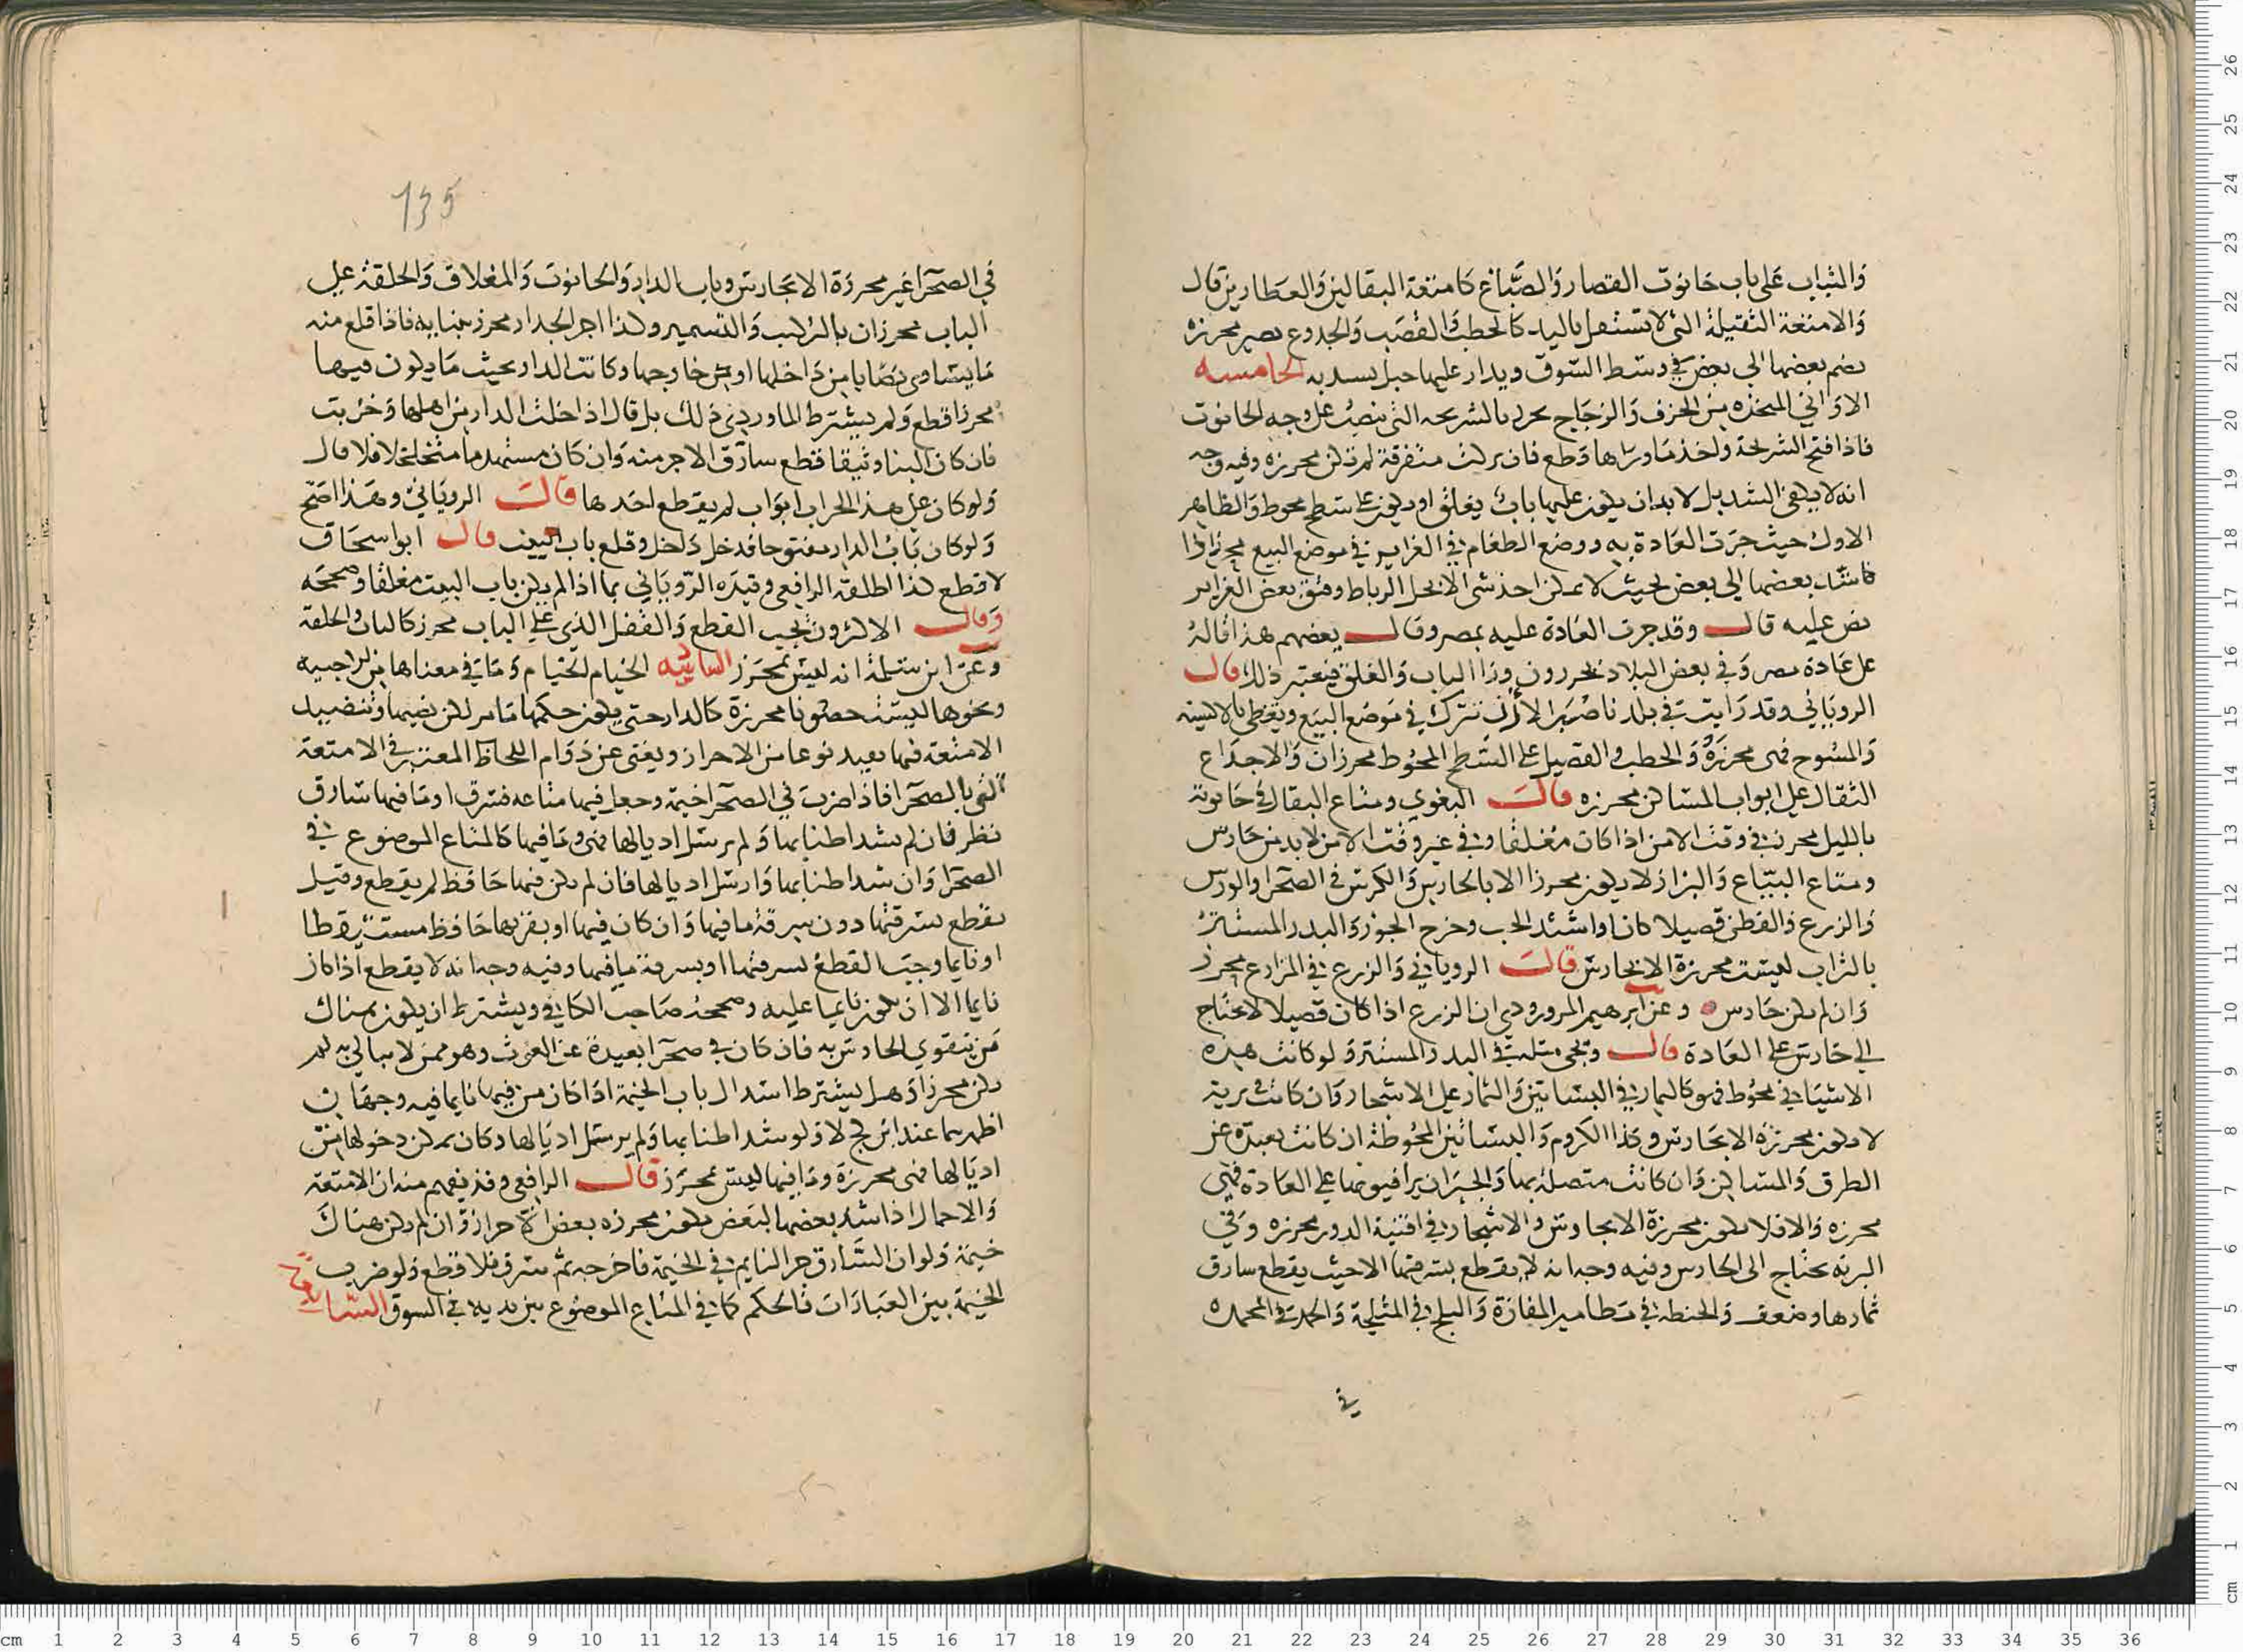 والثياب على باب حانوت القصار والصباغ كامتعة البقالين والعطارين قال
والامتعة الثقيلة التي لا تستقل باليد كالحطب والقصب والجذوع تصير محرزة
بضم بعضها الى بعض في وسط السوق ويدار عليها حبل يشد به الخامسة
الاواني المتخذه من الخزف والزجاج تحرز بالشريحه التي تنصب على وجه الحانوت
فاذا فتح الشريحة واخذ ما وراها قطع فان تركت متفرقة لم تكن محرزة وفيه وجه
انه لا يكفي الشد بل لا بد ان يكون عليها باب يغلق او يكون على سطح محوط والظاهر
الاول حيث جرت العادة به ووضع الطعام في الغراير في موضع البيع محرز اذا
بعضها الى بعض بحيث لا يمكن اخذ شي الا بحل الرباط وفتق بعض الغراير
نص عليه قال وقد جرت العادة عليه بمصر وقال بعضهم هذا قاله
على عادة مصر وفي بعض البلاد يحرزون ورا الباب والغلق فيعتبر ذلك قال
الروياني وقد رايت في بلد ناصبر الارز تترك في موضع البيع ويغطى بالاكسية
والمسوح فهي محرزة والحطب والقصيل على السطح المحوط محرزان والاجذاع
الثقال على ابواب المساكن محرزه قال البغوي ومتاع البقال في حانوته
بالليل محرز في وقت الامن اذا كان مغلقا وفي غير وقت الامن لا بد من حارس
ومتاع البياع والبزاز لا يكون محرزا الا بالحارس والكرس في الصحرا والورس
والزرع والقطن قصيلا كان او اشتد الحب وخرج الجوز والبذر المستتر
بالتراب ليست محرزة الا بحارس قال الروياني والزرع في المزارع محرز
وان لم يكن حارس وعن ابرهيم المروروذي ان الزرع اذا كان قصيلا لا يحتاج
الى حارس على العادة قال ويجي مثله في البذر المستتر ولو كانت هذه
الاشيا في محوط فهو كالثمار في البساتين والثمار على الاشجار وان كانت في برية
لا تكون محرزة الا بحارس وكذا الكروم والبساتين المحوطة ان كانت بعيدة عن
الطرق والمساكن وان كانت متصلة بها والجيران يراقبونها على العادة فهي
محرزه والا فلا تكون محرزة الا بحارس والاشجار في افنية الدور محرزه وفي
البريه يحتاج الى الحارس وفيه وجه انه لا يقطع بسرقتها الا حيث يقطع سارق
ثمارها وضعف والحنطه في مطامير المفازة والثلج في المثلجة والجمد في المجمده
في
135
في الصحرا غير محرزة الا بحارس وباب الدار والحانوت والمغلاق والحلقة على
الباب محرزان بالتركيب والتسمير وكذا اجر الجدار محرز ببنايه فاذا قلع منه
ما يساوي نصابا من داخلها او من خارجها وكانت الدار بحيث ما يكون فيها
محرزا قطع ولم يشترط الماوردي ذلك بل قال اذا خلت الدار من اهلها وخربت
فان كان البنا وثيقا قطع سارق الاجر منه وان كان مستهدما متخلخلا فلا قال
ولو كان على هذا الخراب ابواب لم يقطع احدها قال الروياني وهذا اصح
ولو كان باب الدار مفتوحا فدخل داخل وقلع باب البيت قال ابو اسحاق
لا قطع كذا اطلقه الرافعي وقيده الروياني بما اذا لم يكن باب البيت مغلقا وصححه
وقال الاكثرون يجب القطع والقفل الذي على الباب محرز كالباب والحلقة
وعن ابن سلمة انه ليس بمحرز السادسة الخيام الخيام وما في معناها من
ونحوها ليست حصونا محرزة كالدار حتى يكون حكمها ما مر لكن نصبها وتنضيد
الامتعة فيها يفيد نوعا من الاحراز ويغني عن دوام اللحاظ المعتبر في الامتعة
التي بالصحرا فاذا ضرب في الصحرا خيمة وجعل فيها متاعه فسرق او ما فيها سارق
نظر فان لم يشد اطنابها ولم يرسل اديالها فهي وما فيها كالمتاع الموضوع في
الصحرا وان شد اطنابها وارسل اديالها فان لم يكن فيها حافظ لم يقطع وقيل
يقطع بسرقتها دون سرقة ما فيها وان كان فيها او بقربها حافظ مستيقظا
او نايما وجب القطع بسرقتها او بسرقة ما فيها وفيه وجه انه لا يقطع اذا كان
نايما الا ان يكون نايما عليه وصححه صاحب الكافي ويشترط ان يكون هناك
من يتقوى الحارس به فان كان في صحرا بعيدة عن الغوث وهو ممن لا يبالى به لم
يكن محرزا وهل يشترط اسدال باب الخيمة اذا كان من فيها نايما فيه وجهان
اظهرهما عند لا ولو شد اطنابها ولم يرسل اديالها وكان يمكن دخولها من
اديالها فهي محرزة وما فيها ليس بمحرز قال الرافعي وقد يفهم منه ان الامتعة
والاحمال اذا شد بعضها لبعض تكون محرزه بعض الاحراز وان لم يكن هناك
خيمة ولو ان السارق جر النايم في الخيمة فاخرجه ثم سرق فلا قطع ولو ضرب
الخيمة بين العبادات فالحكم كما في المتاع الموضوع بين يديه في السوق السابعة